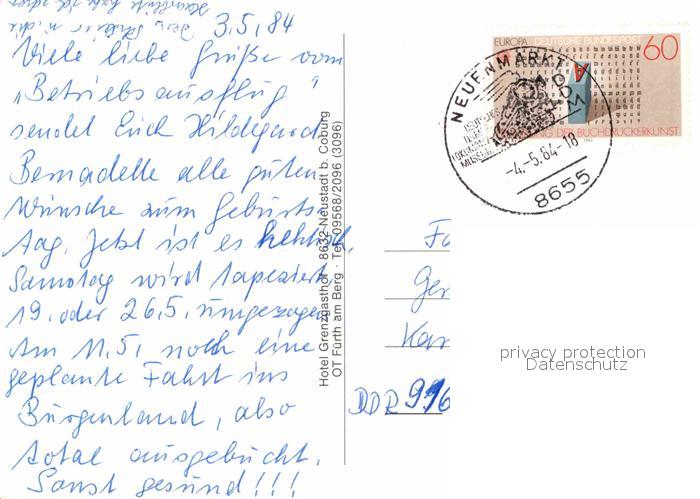 3.5.84
Viele liebe Grüße vom
"Betriebsausflug"
sendet Euch Hildegard
Bernadette alle guten
Wünsche zum Geburts-
tag. Jetzt ist es hektisch,
Samstag wird tapeziert
19. oder 26.5. umgezogen
Am 11.5. noch eine
geplante Fahrt ins
Burgenland, also
total ausgebucht.
Sonst gesund!!!
Hotel Grenzgasthof · 8632 Neustadt b. Coburg
OT Fürth am Berg · Tel. 09568/2096 (3096)
EUROPA DEUTSCHE BUNDESPOST 60
DER BUCHDRUCKERKUNST
NEUENMARKT
DDM
-4.-5.84-18
8655
Ge
Kar
DDR 9
privacy protection
Datenschutz